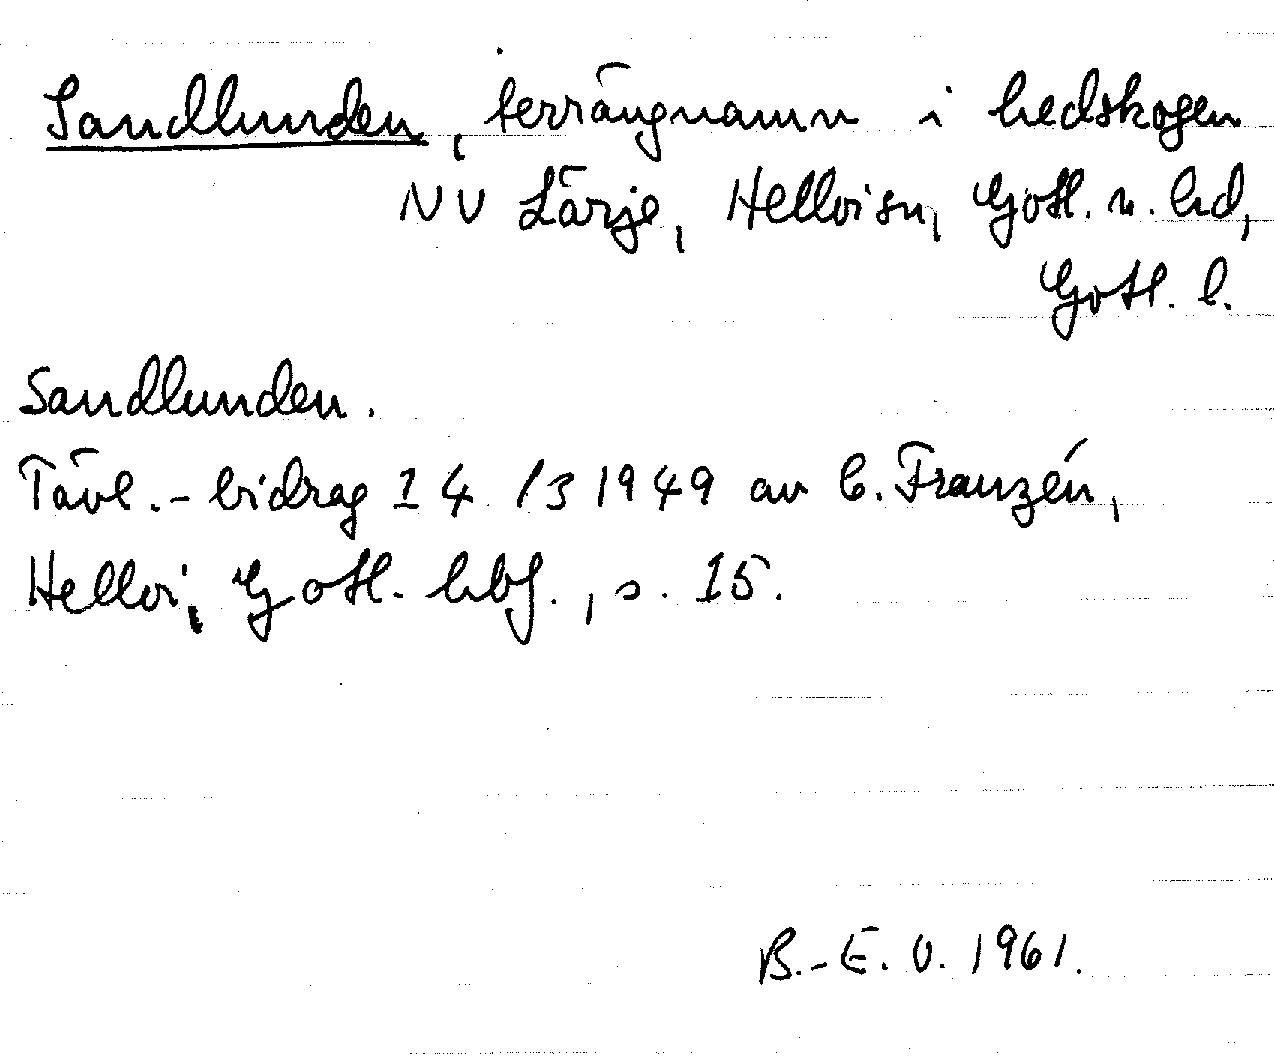 Sandlunden, terrängnamn i hedskogen
NV Lärje, Hellvi sn, Gotl. n. hd,
Gotl. l.
Sandlunden.
Tävl.-bidrag 14/3 1949 av C. Franzén,
Hellvi, Gotl. hbf., s. 15.
B.-E. O. 1961.